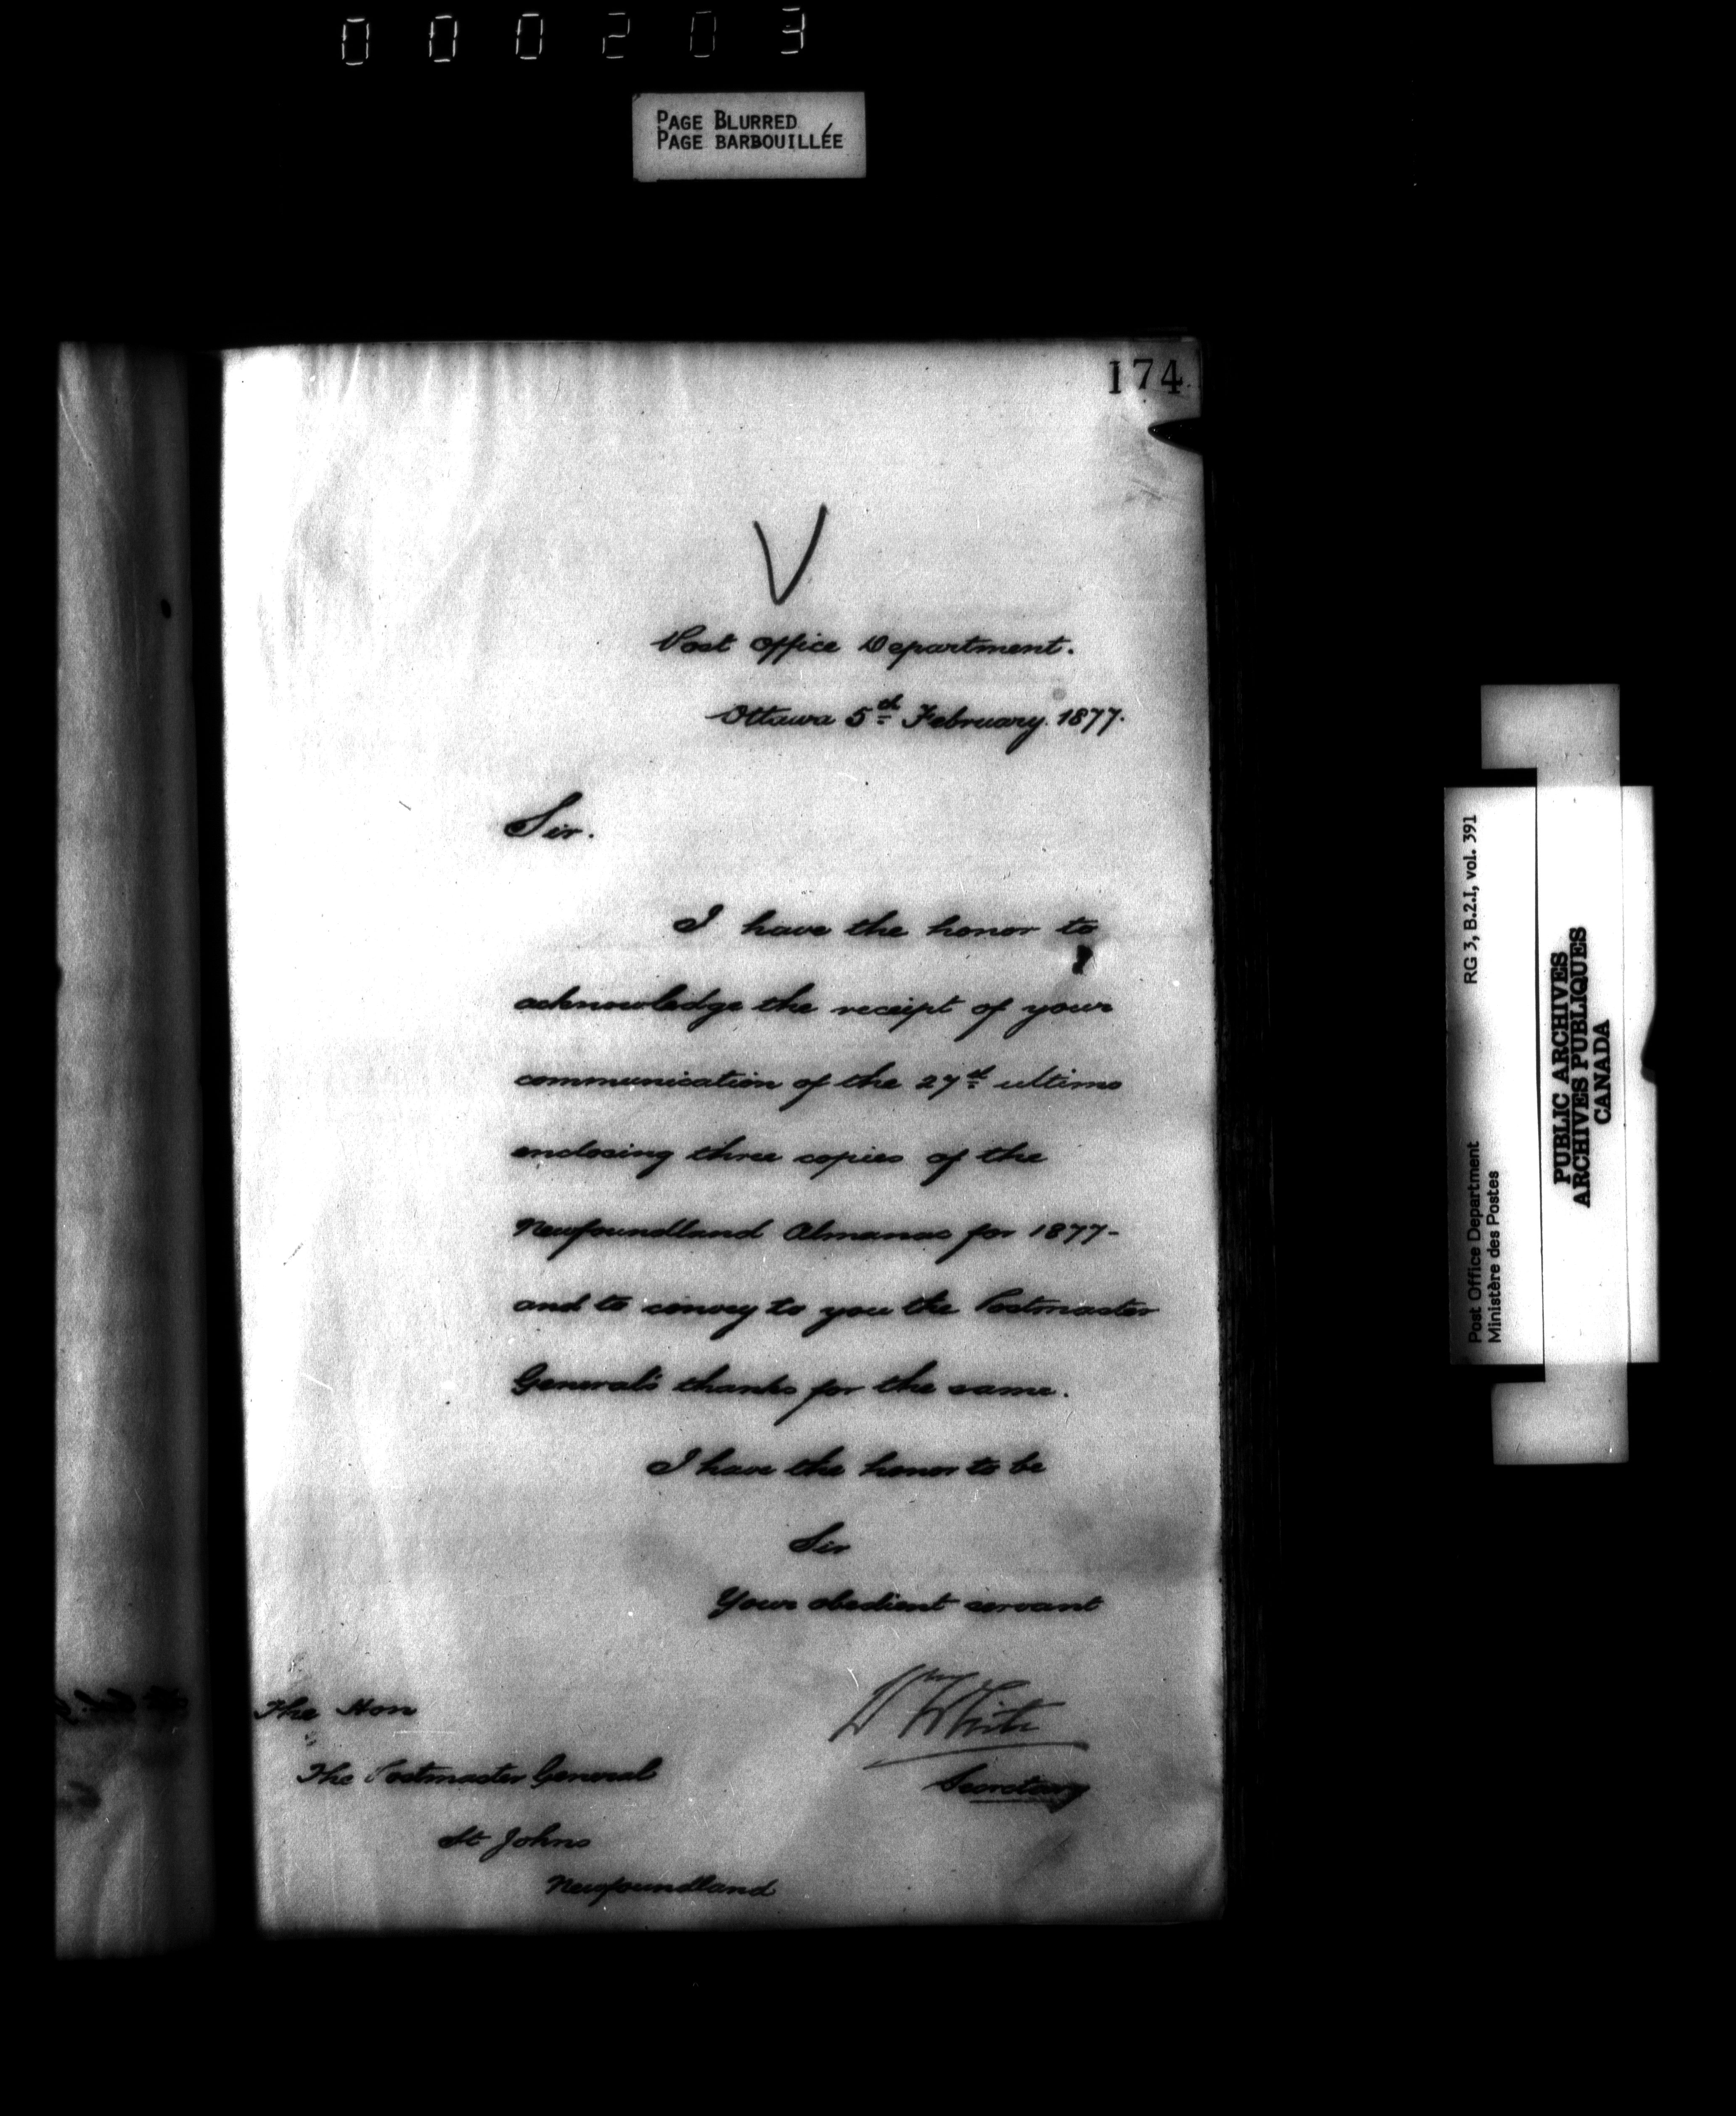 000203
PAGE BLURRED
PAGE BARBOUILLÉE
174
Post Office Department.
Ottawa 5th February. 1877.
Sir.
I have the honor to
acknowledge the receipt of your
communication of the 27th ultimo
enclosing three copies of the
Newfoundland Almanac for 1877-
and to convey to you the Postmaster
General's thanks for the same.
I have the honor to be
Sir
Your obedient servant
Wm White
Secretary
The Hon
The Postmaster General
St Johns
Newfoundland
Post Office Department
Ministère des Postes
RG 3, B.2.1, vol. 391
PUBLIC ARCHIVES
ARCHIVES PUBLIQUES
CANADA